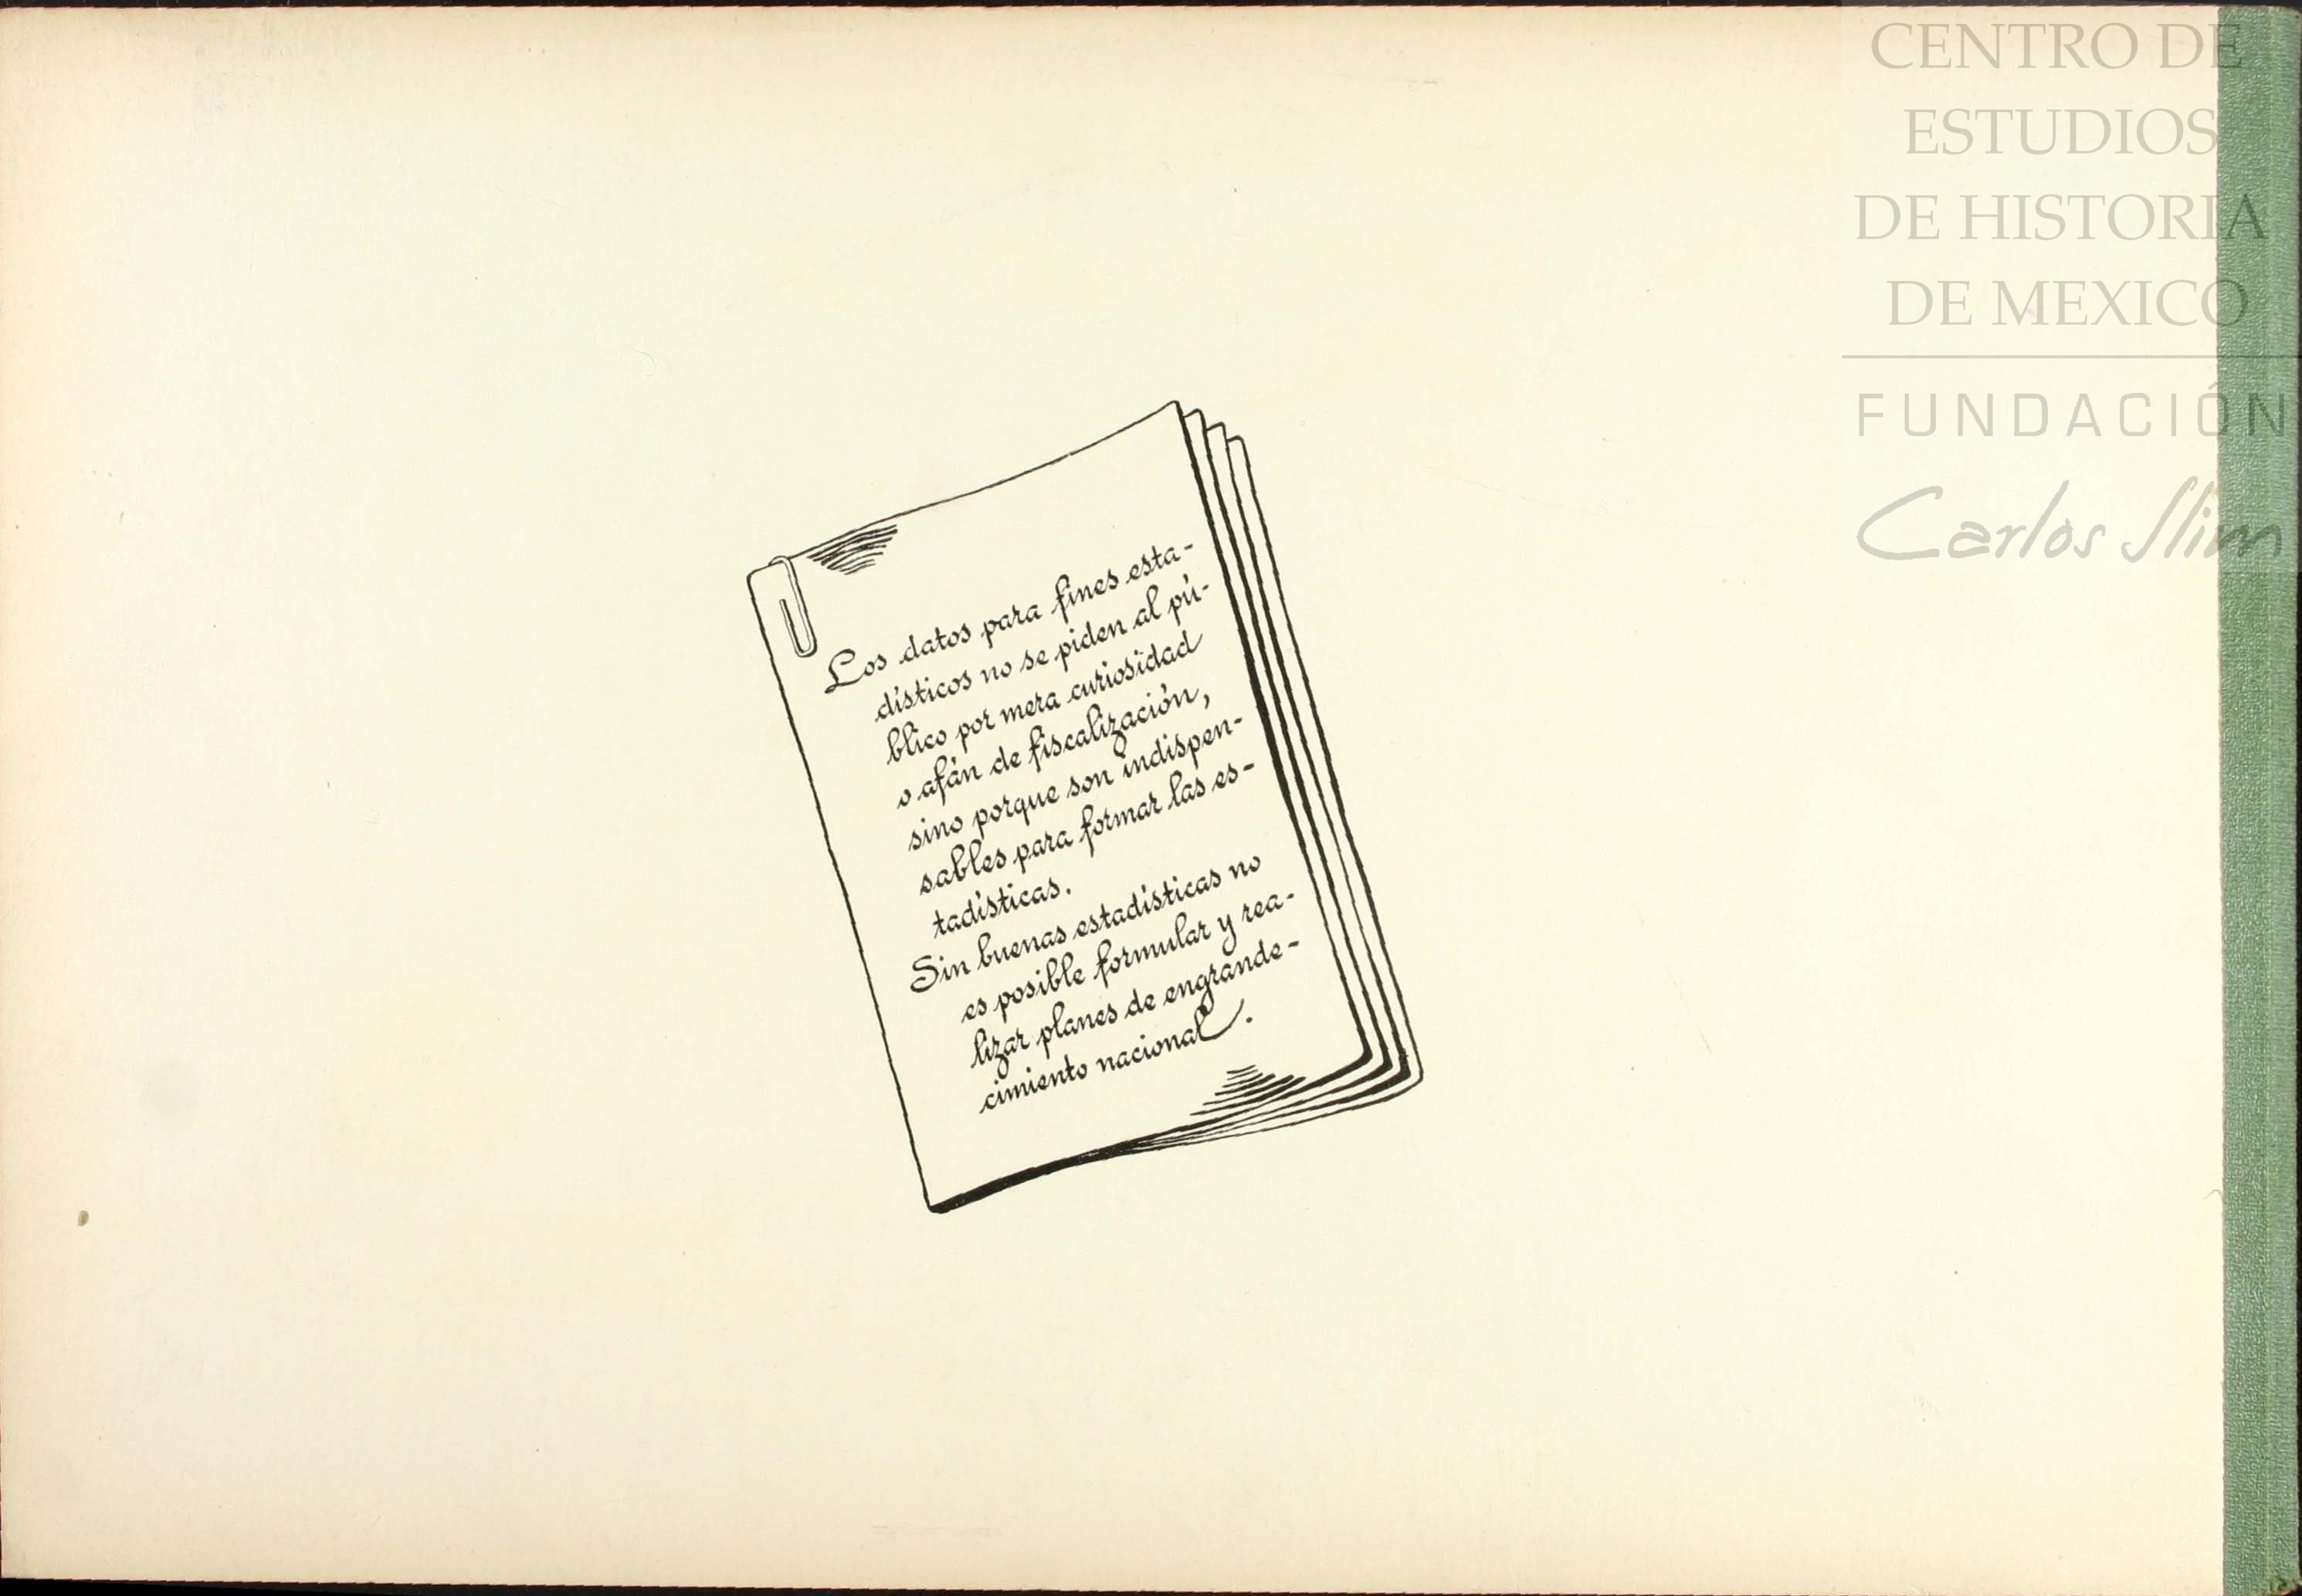 CENTRO DE
ESTUDIOS
DE HISTORIA
DE MEXICO
FUNDACIÓN
Carlos Slim
Los datos para fines esta-
dísticos no se piden al pú-
blico por mera curiosidad
o afán de fiscalización,
sino porque son indispen-
sables para formar las es-
tadísticas.
Sin buenas estadísticas no
es posible formular y rea-
lizar planes de engrande-
cimiento nacional.